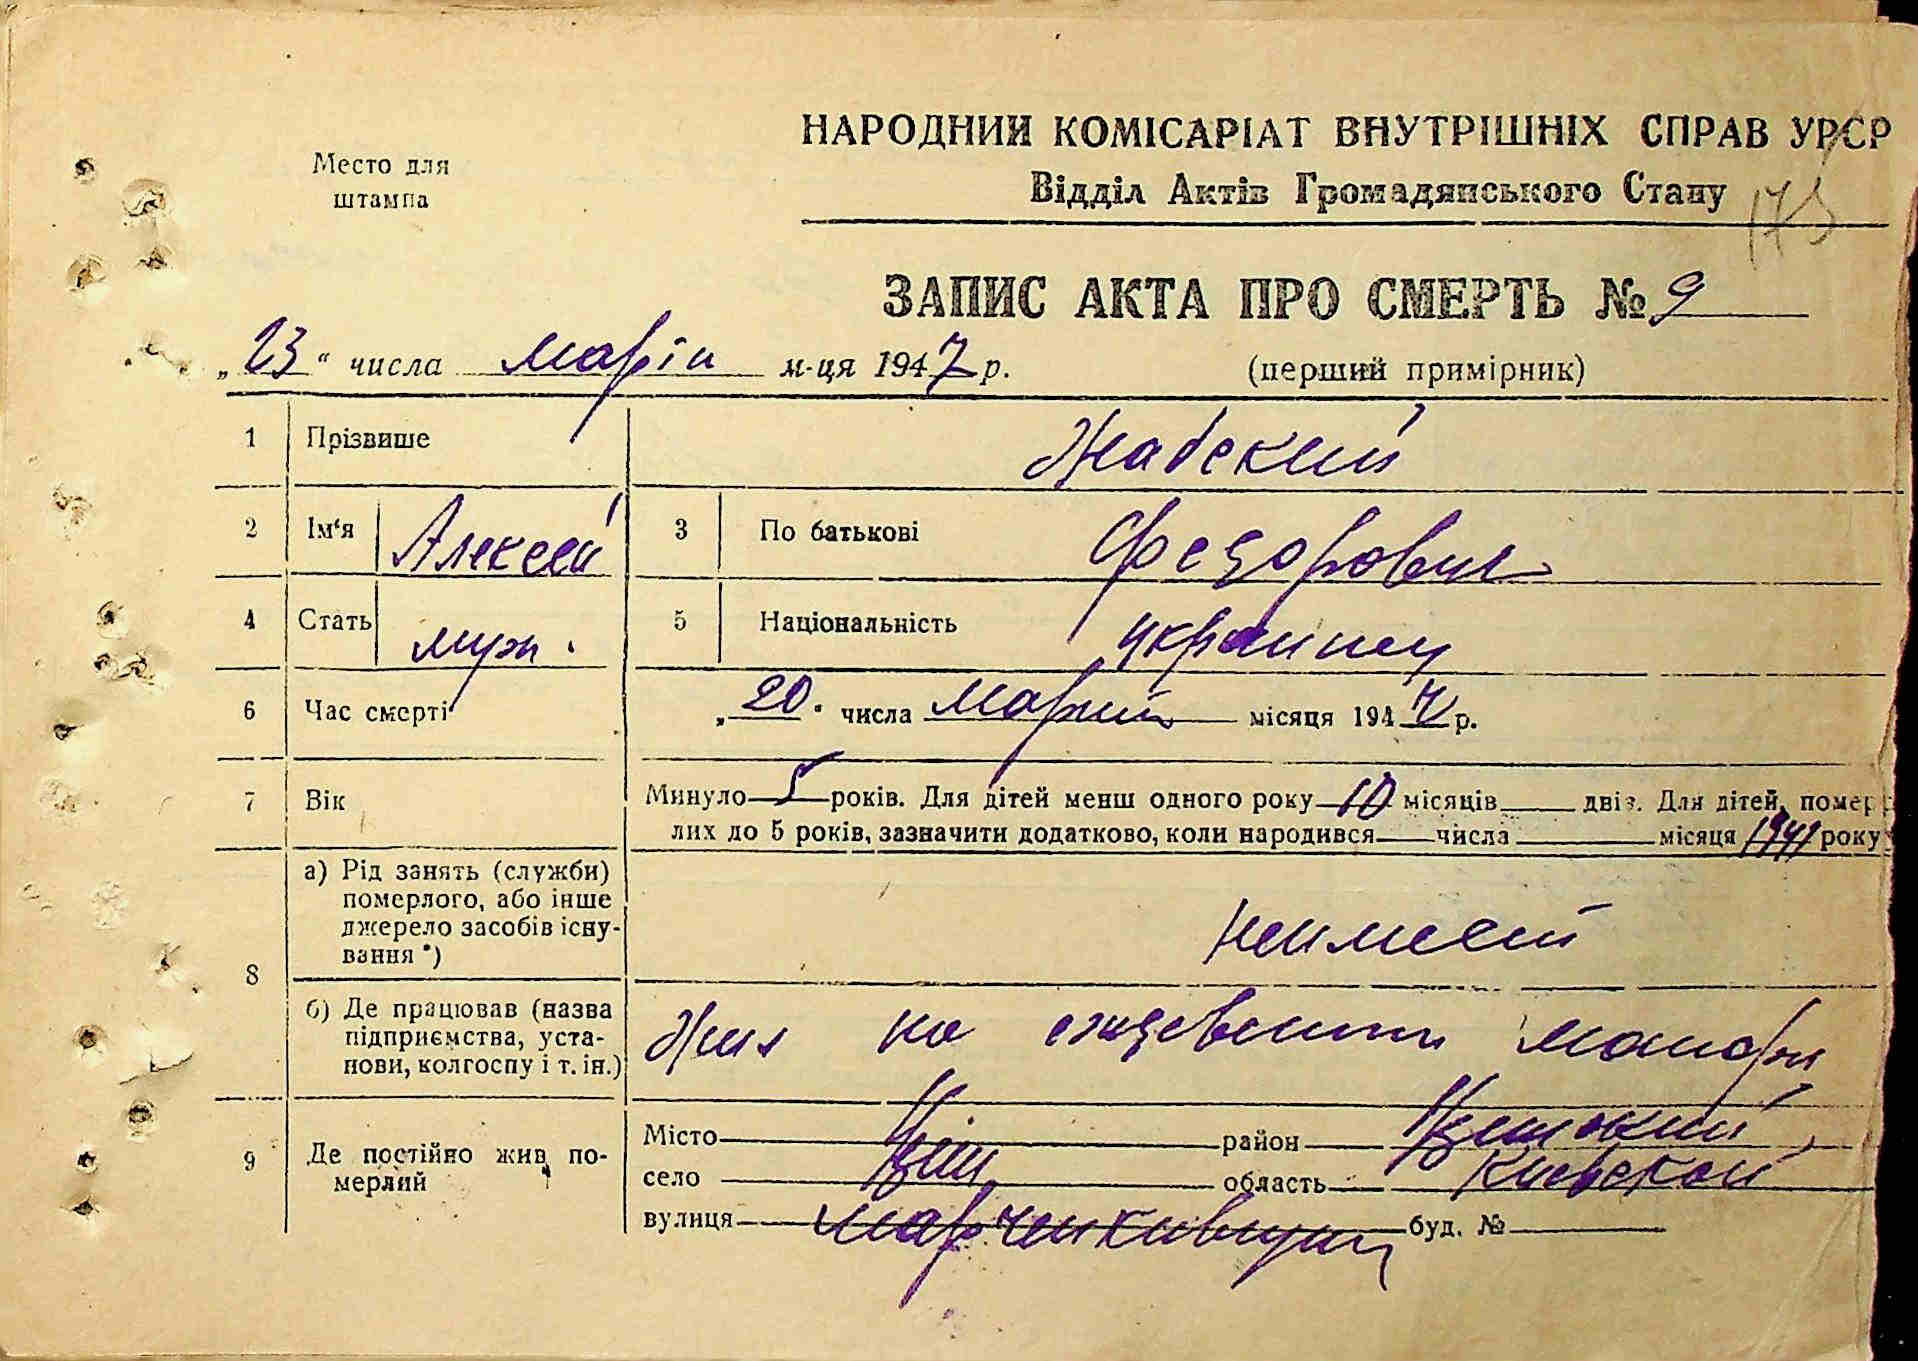 НАРОДНИЙ КОМІСАРІАТ ВНУТРІШНІХ СПРАВ УРСР
Место для
штампа
Відділ Актів Громадянського Стану
175
ЗАПИС АКТА ПРО СМЕРТЬ № 9
„23“ числа марта м-ця 1947 р.
(перший примірник)
1 Прізвише Жабский
2 Ім‘я Алексей 3 По батькові Федорович
4 Стать муж. 5 Національність украинец
6 Час смерті „20. числа марта місяця 1947 р.
7 Вік Минуло 5 років. Для дітей менш одного року 10 місяців двів. Для дітей, помер
лих до 5 років, зазначити додатково, коли народився числа місяця 1941 року
8 а) Рід занять (служби)
померлого, або інше
джерело засобів існу-
вання *)
неимеет
б) Де працював (назва
підприємства, уста-
нови, колгоспу і т. ін.)
Жил на иждевении матери
9 Де постійно жив по-
мерлий
Місто район
село область Киевской
вулиця буд. №